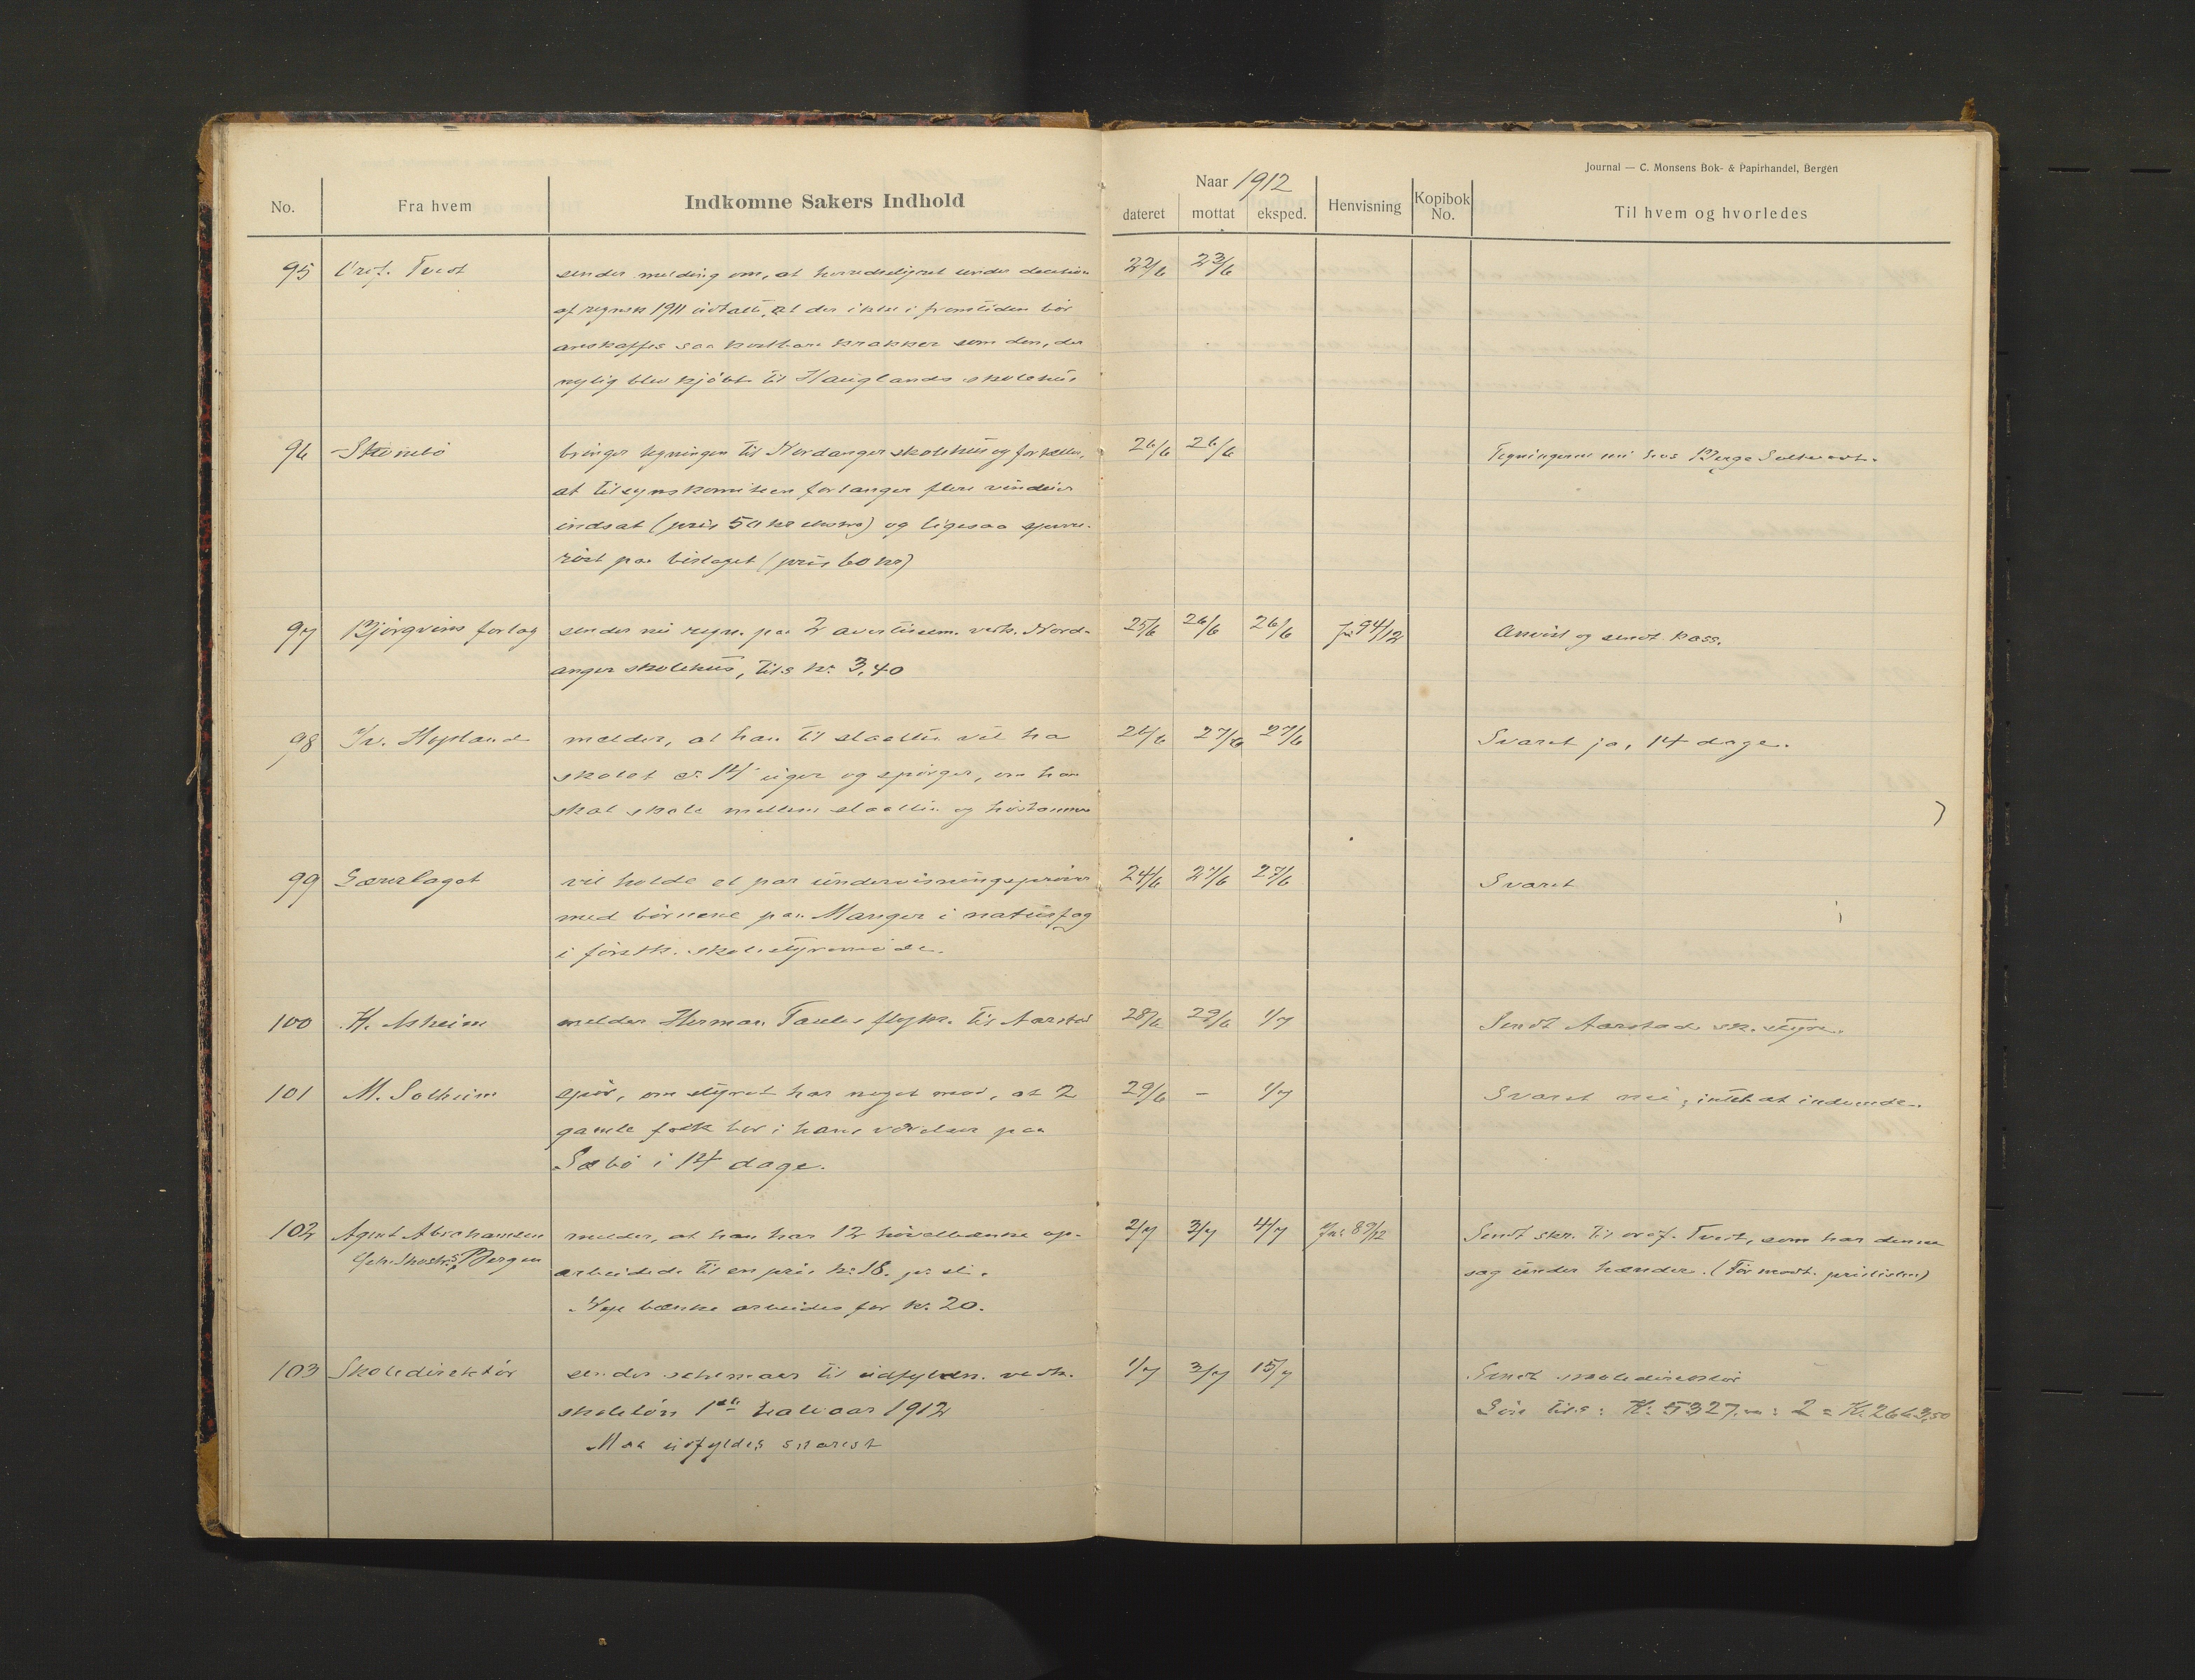 Journal — C. Monsens Bok- & Papirhandel, Bergen
No.
Fra hvem
Indkomne Sakers Indhold
Naar 1912
dateret
mottat
eksped.
Henvisning
Kopibok No.
Til hvem og hvorledes
95 Tvedt sender melding om, at herredsstyret under decision 22/6 23/6
af regnsk 1911 udtalte, at der ikke i fremtiden bør
anskaffes saa kostbare krakker som den, der
nylig blev kjøbt til Hauglands skolehus
96 bringer tegningen til Nordanger skolehus og fortæller, 26/6 26/6 Tegningerne nu hos Berge
at tilsynskomiteen forlanger flere vinduer
indsat (pris 50 kr ekstra) og ligesaa
røst paa bislaget (pris 60 kr)
97 Bjørgvins forlag sender nu regn. paa 2 avertissem. vedk. Nord- 25/6 26/6 26/6 Jr. 94/12 Anvist og sendt kass.
anger skolehus, tils kr. 3,40
98 melder, at han til slaatten vil ha 26/6 27/6 27/6 Svaret ja, 14 dage.
skolet i 14 uger og spørger, om han
skal skole mellem slaatten og høstonnen
99 Lærerlaget vil holde et par undervisningsprøver 24/6 27/6 27/6 Svaret
med børnene paa Manger i naturfag
i førstk. skolestyremøde.
100 H. Asheim melder Herman flytn. til Aarstad 28/6 29/6 1/7 Sendt Aarstad sk. styre.
101 M. Solheim spør, om styret har noget mod, at 2 29/6 – 1/7 Svaret nei; intet at indvende.
gamle folk bor i hans værelser paa
Sæbø i 14 dage.
102 Agent Abrahamsen melder, at han har 12 høvelbænke op- 2/7 3/7 4/7 Jr. 89/12 Sendt skr. til Tveit, som har denne
Bergen arbeidede til en pris kr. 18. pr. st. sag under hænder. (Før modt. prislisten)
Nye bænke arbeides for kr. 20.
103 Skoledirektør sender schemaer til udfylden. vedk. 1/7 3/7 15/7 Sendt skoledirektør
skoleløn 1ste halvaar 1912 tils: Kr. 5327.00 : 2 = Kr. 2663,50
Maa udfyldes snarest